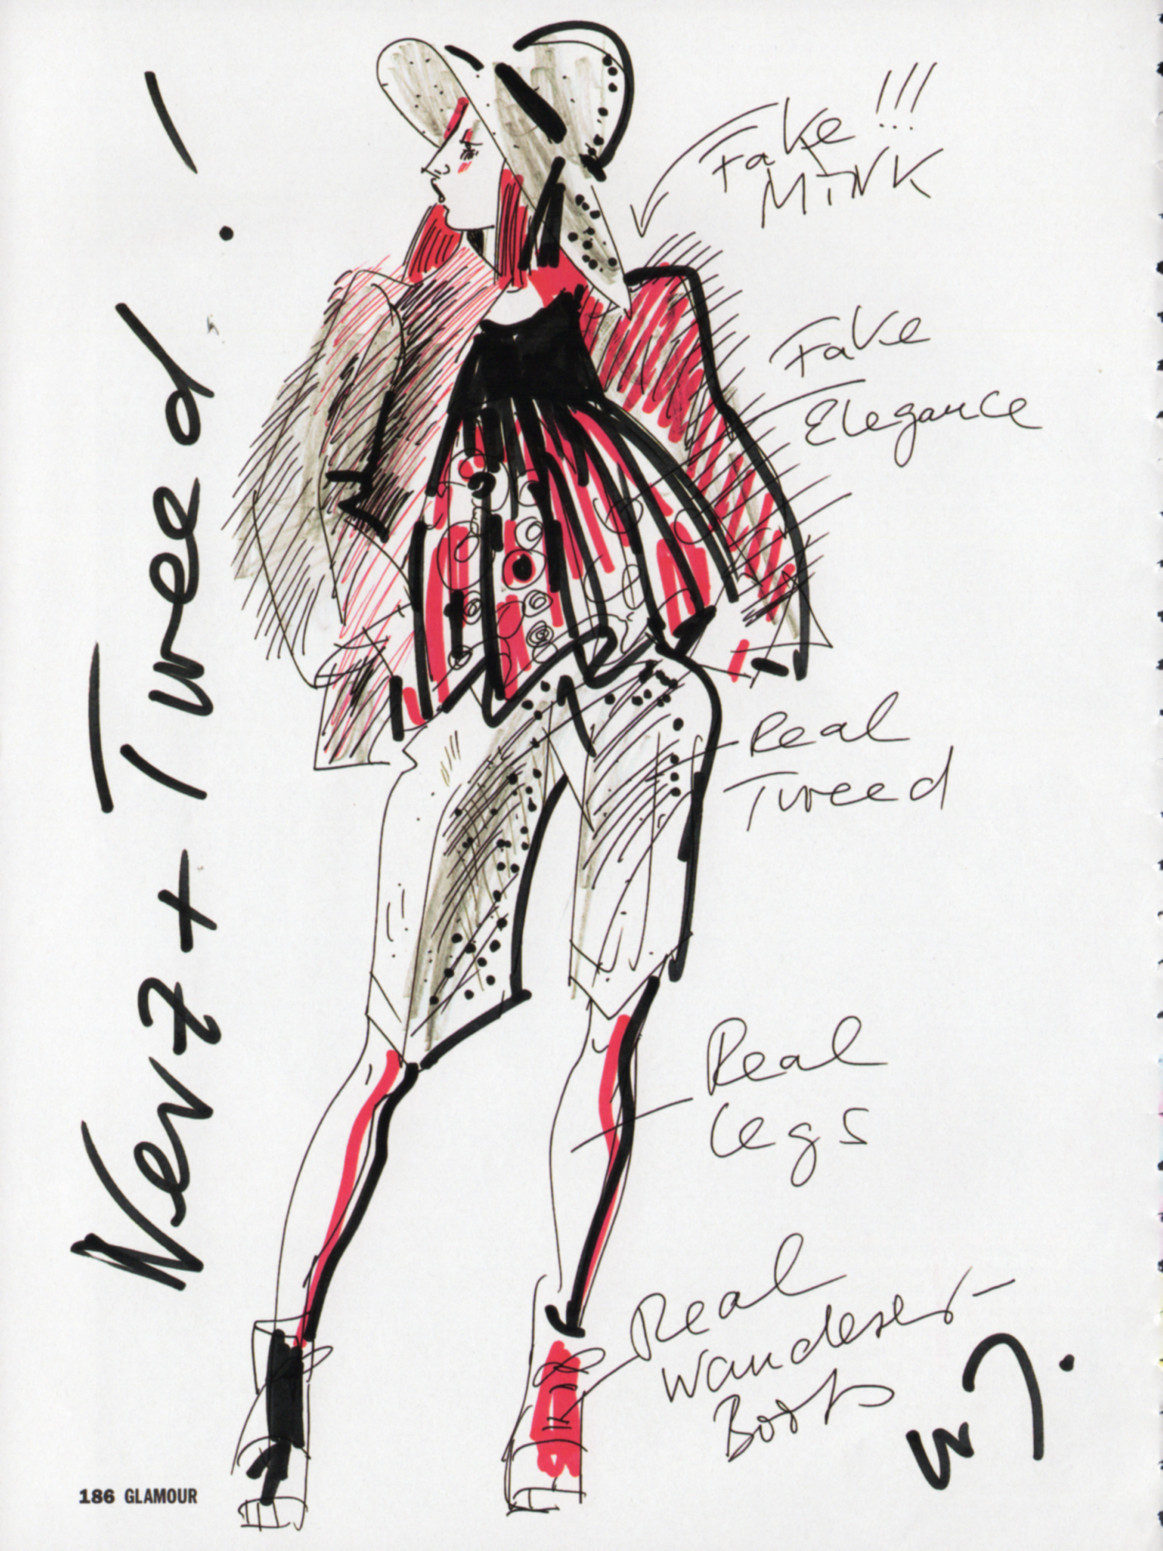 Nerz + Tweed!
Fake !!!
MINK
Fake
Elegance
Real
Tweed
Real
Legs
Real
Wander-
Boots
WJ.
186 GLAMOUR